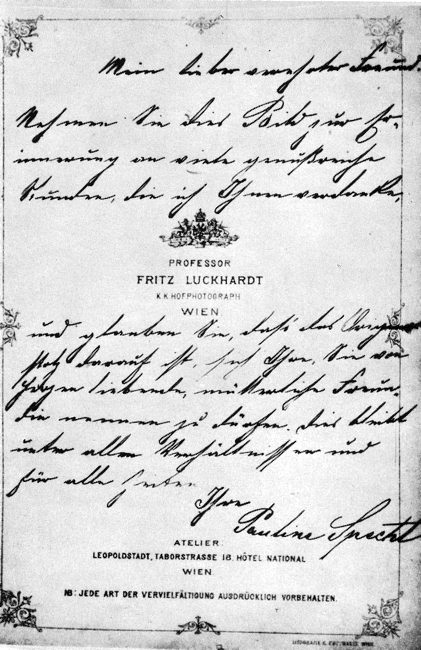 Mein lieber verehrter Freund.
Nehmen Sie dies Bild zur Er-
innerung an viele genußreiche
Stunden, die ich Ihnen verdanke,
PROFESSOR
FRITZ LUCKHARDT
K.K.HOFPHOTOGRAPH
WIEN
und glauben Sie, daß das Original
stolz darauf ist, sich Ihre, Sie von
Herzen liebende, mütterliche Freun-
din nennen zu dürfen. Dies bleibt
unter allen Verhältnissen und
für alle Zeiten
Ihre
Pauline Specht
ATELIER:
LEOPOLDSTADT, TABORSTRASSE 18. HÔTEL NATIONAL
WIEN.
NB: JEDE ART DER VERVIELFÄLTIGUNG AUSDRÜCKLICH VORBEHALTEN.
WIEN